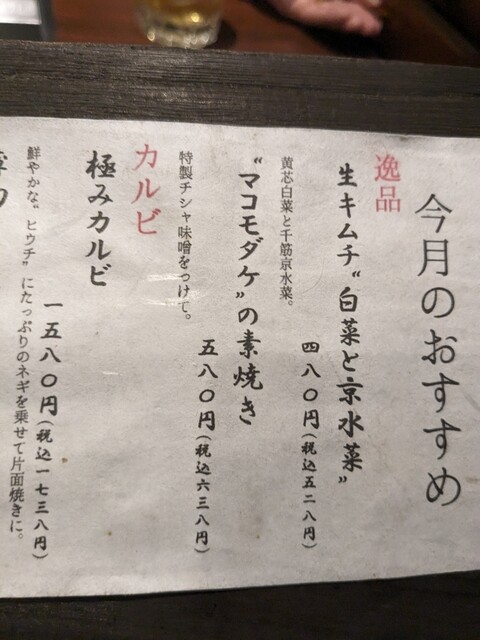 今月のおすすめ
逸品
生キムチ“白菜と京水菜”
四八〇円(税込五二八円)
黄芯白菜と千筋京水菜。
“マコモダケ”の素焼き
五八〇円(税込六三八円)
特製チシャ味噌をつけて。
カルビ
極みカルビ
一五八〇円(税込一七三八円)
鮮やかな“ヒウチ”にたっぷりのネギを乗せて片面焼きに。